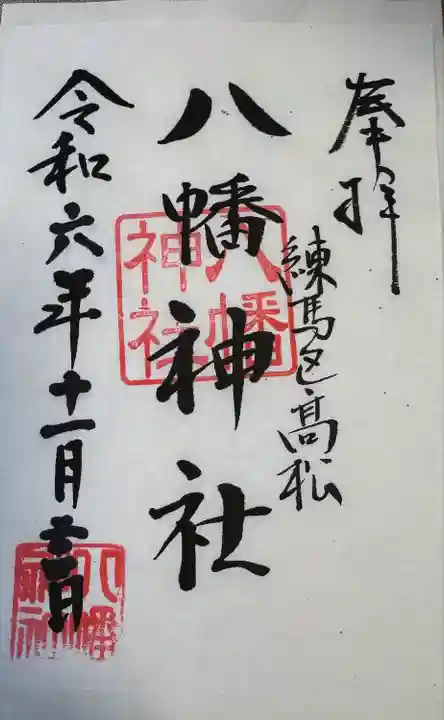 奉拝
練馬区高松
八幡神社
八幡
神社
令和六年十一月廿三日
八幡
神社